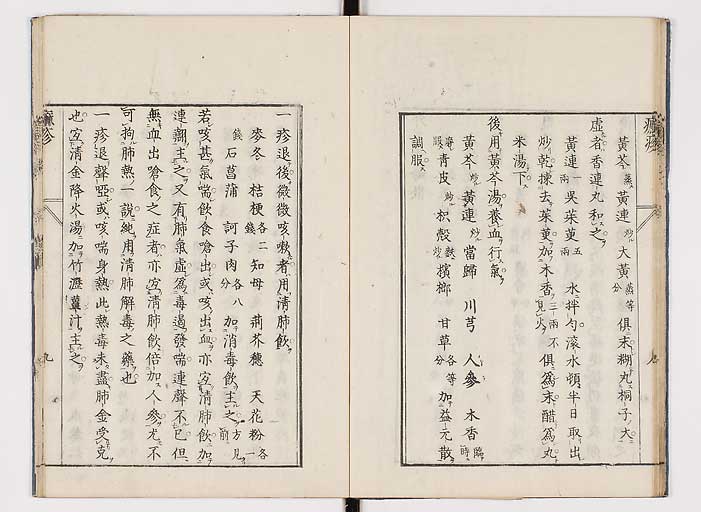 黃芩蒸黃連炒大黃蒸等分俱末糊丸桐子大
虛者香連丸和之
黃連一兩吳茱萸五兩水拌勻滾水頓半日取出
炒乾揀去茱萸加木香三兩不見火俱爲末醋爲丸
米湯下
後用黃芩湯養血行氣
黃芩炒黃連炒當歸川芎人參木香臨時
青皮炒枳殼麩炒檳榔甘草各等分加益元散
調服
一疹退後微微咳嗽者用清肺飲
麥冬桔梗各二錢知母荊芥穗天花粉各一
錢石菖蒲訶子肉各八分加消毒飲主之方見前
若咳甚氣喘飲食嗆出或咳出血亦宜清肺飲加
連翹主之又有肺氣虛爲毒遏發喘連聲不已但
無血出嗆食之症者亦宜清肺飲倍加人參尤不
可拘肺熱一說純用清肺解毒之藥也
一疹退聲啞或咳喘身熱此熱毒未盡肺金受克
也宜清金降火湯加竹瀝薑汁主之
九